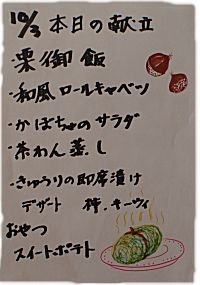 10/3 本日の献立
・栗御飯
・和風ロールキャベツ
・かぼちゃのサラダ
・茶わん蒸し
・きゅうりの即席漬け
デザート 柿.キーウィ
おやつ
スイートポテト